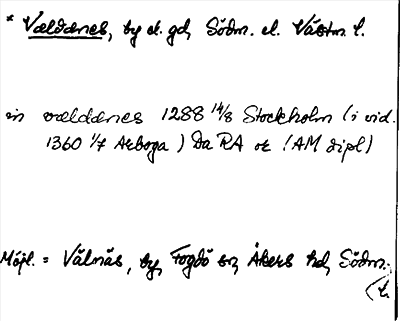 * Vælddenes, by el. gd, Södm. el. Västm. l.
in vælddenes 1288 14/8 Stockholm (i vid.
1360 1/7 Arboga) Da RA or (AM dipl)
Möjl. = Välnäs, by, Fogdö sn, Åkers hd, Södm.
l.